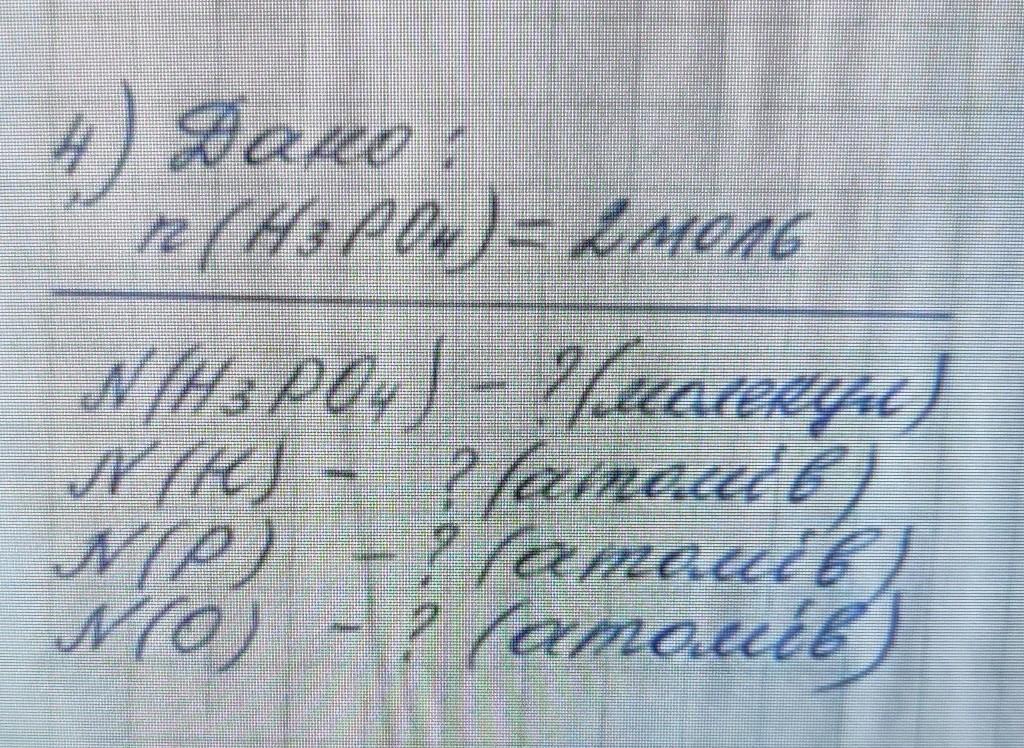 4) Дано:
n(H₃PO₄) = 2 моль
N(H₃PO₄) - ? (молекул)
N(H) - ? (атомів)
N(P) - ? (атомів)
N(O) - ? (атомів)